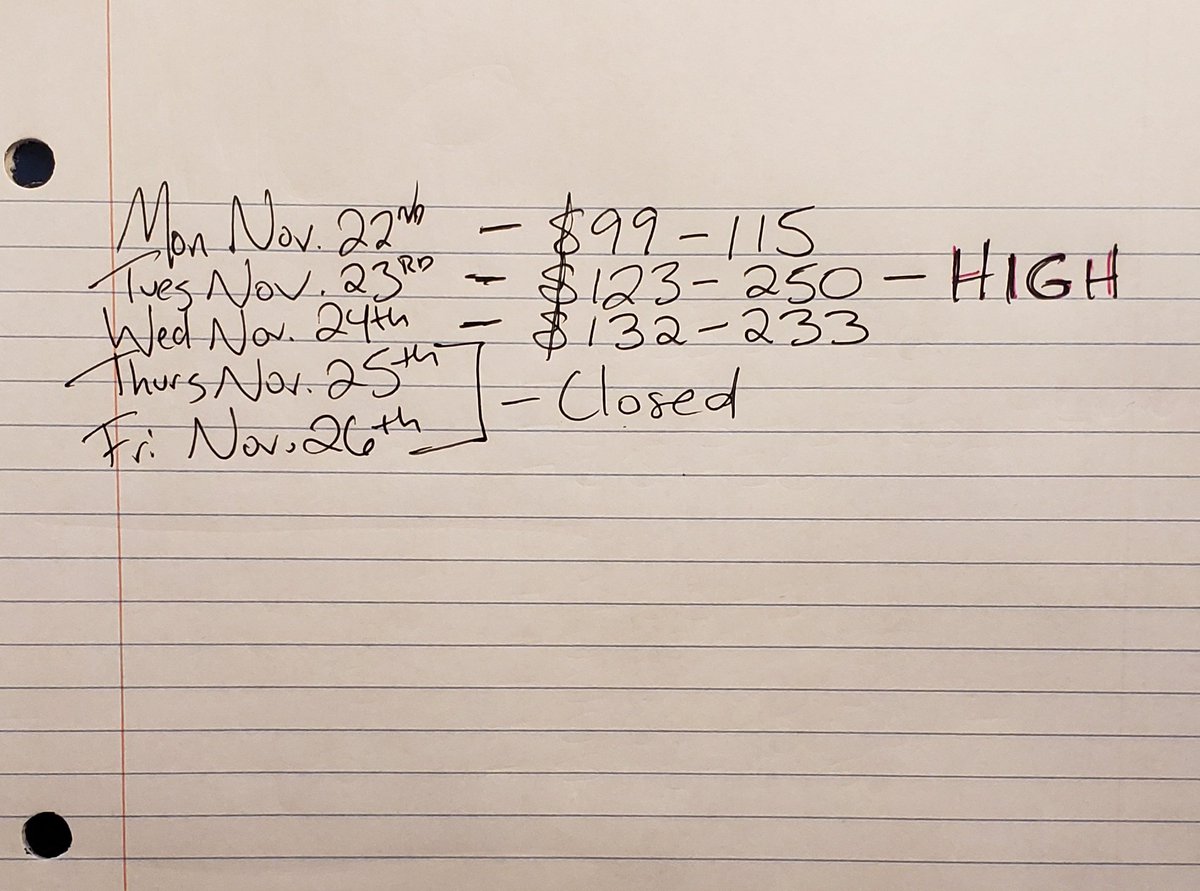 Mon Nov. 22ND - $99-115
Tues Nov. 23RD - $123-250 - HIGH
Wed Nov. 24th - $132-233
Thurs Nov. 25th
Fri Nov. 26th
- Closed